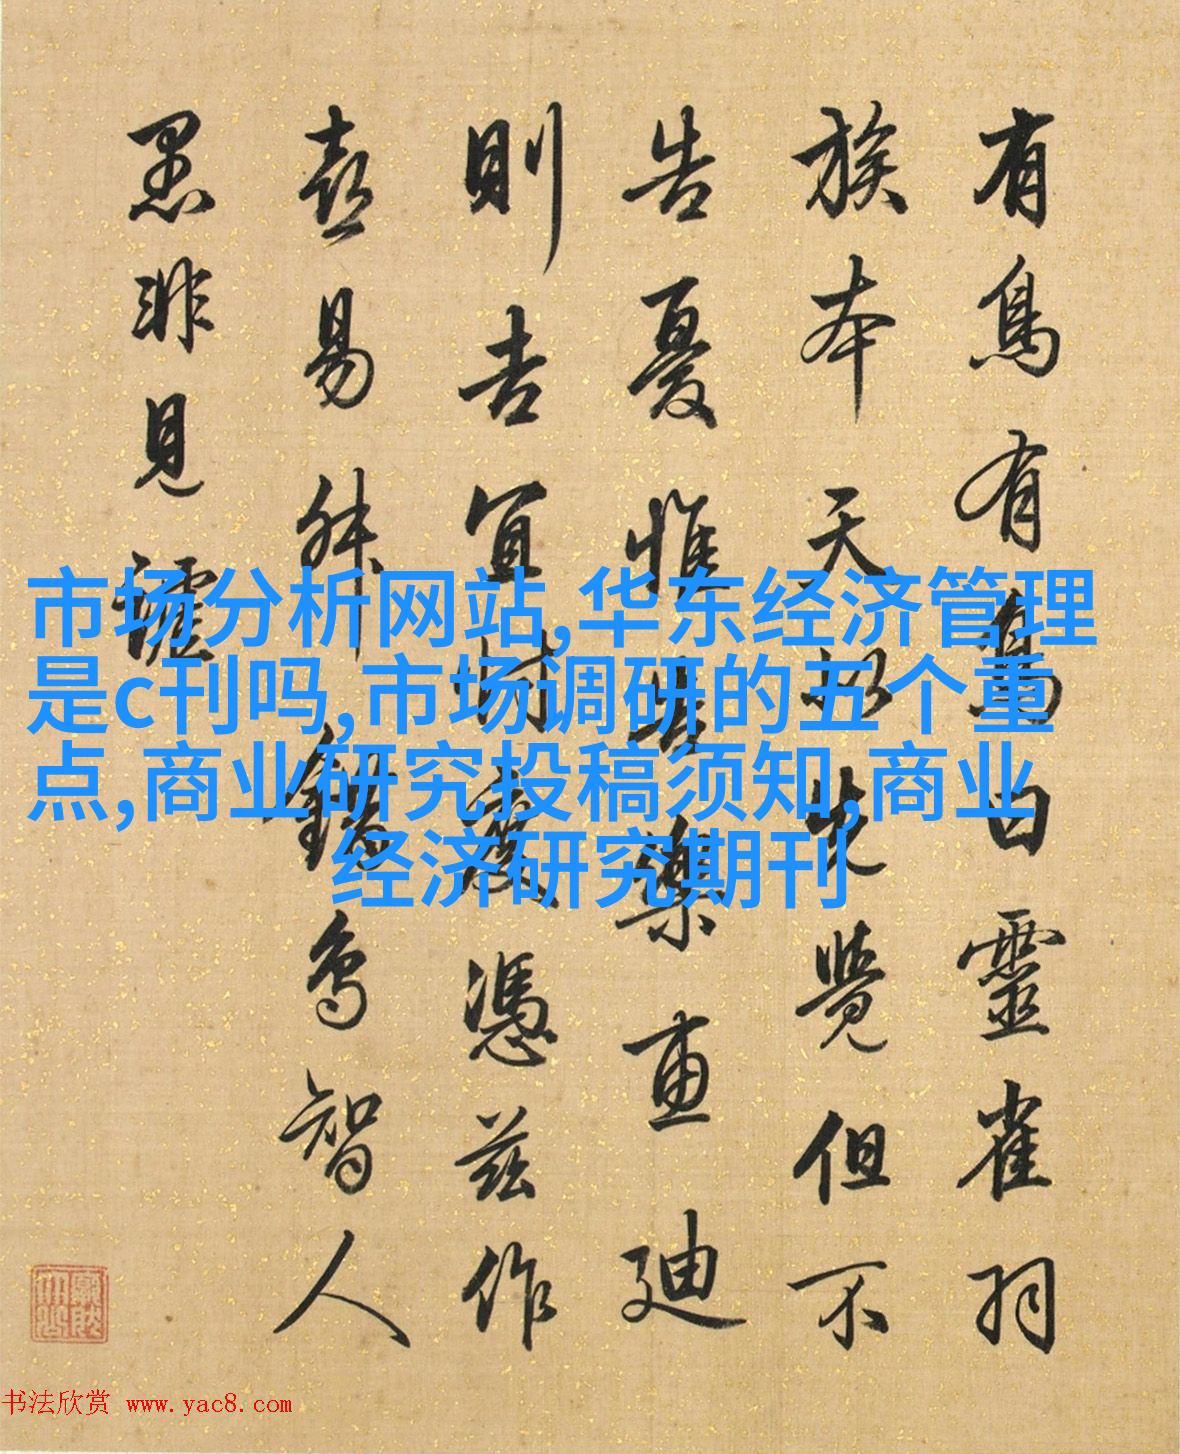 市场分析网站,华东经济管理
是c刊吗,市场调研的五个重
点,商业研究投稿须知,商业
经济研究期刊
有鳥有鳥曰靈雀羽
族本天知先覺但不
告憂惟告樂惠迪
則吉宜憑茲作
喜易智人
非見
书法欣赏 www.yac8.com